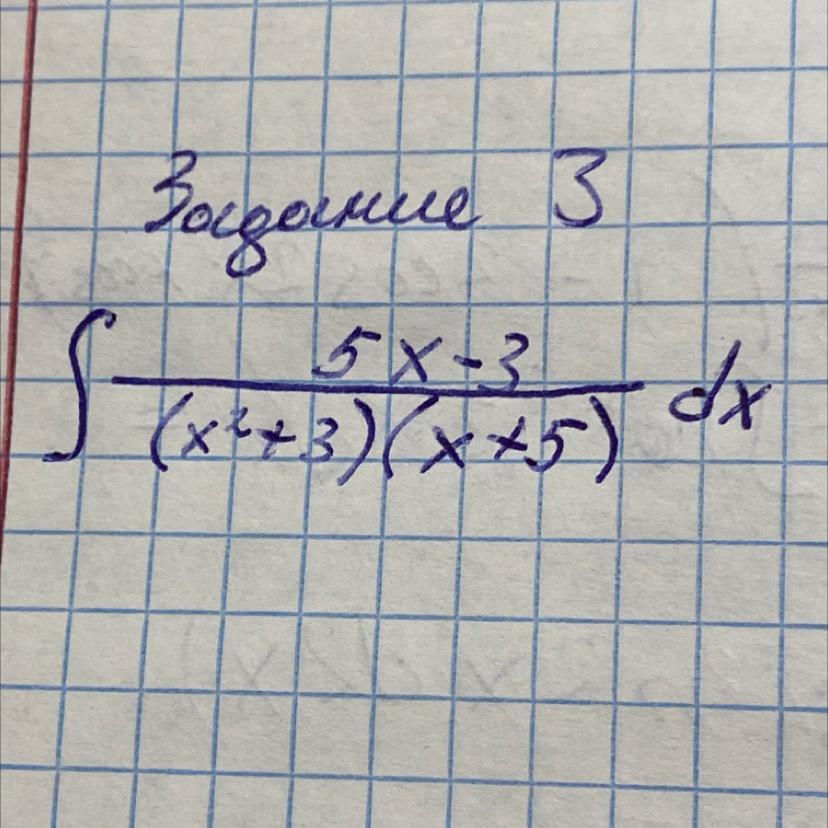 Задание 3
∫ (5x-3)/((x²+3)(x+5)) dx